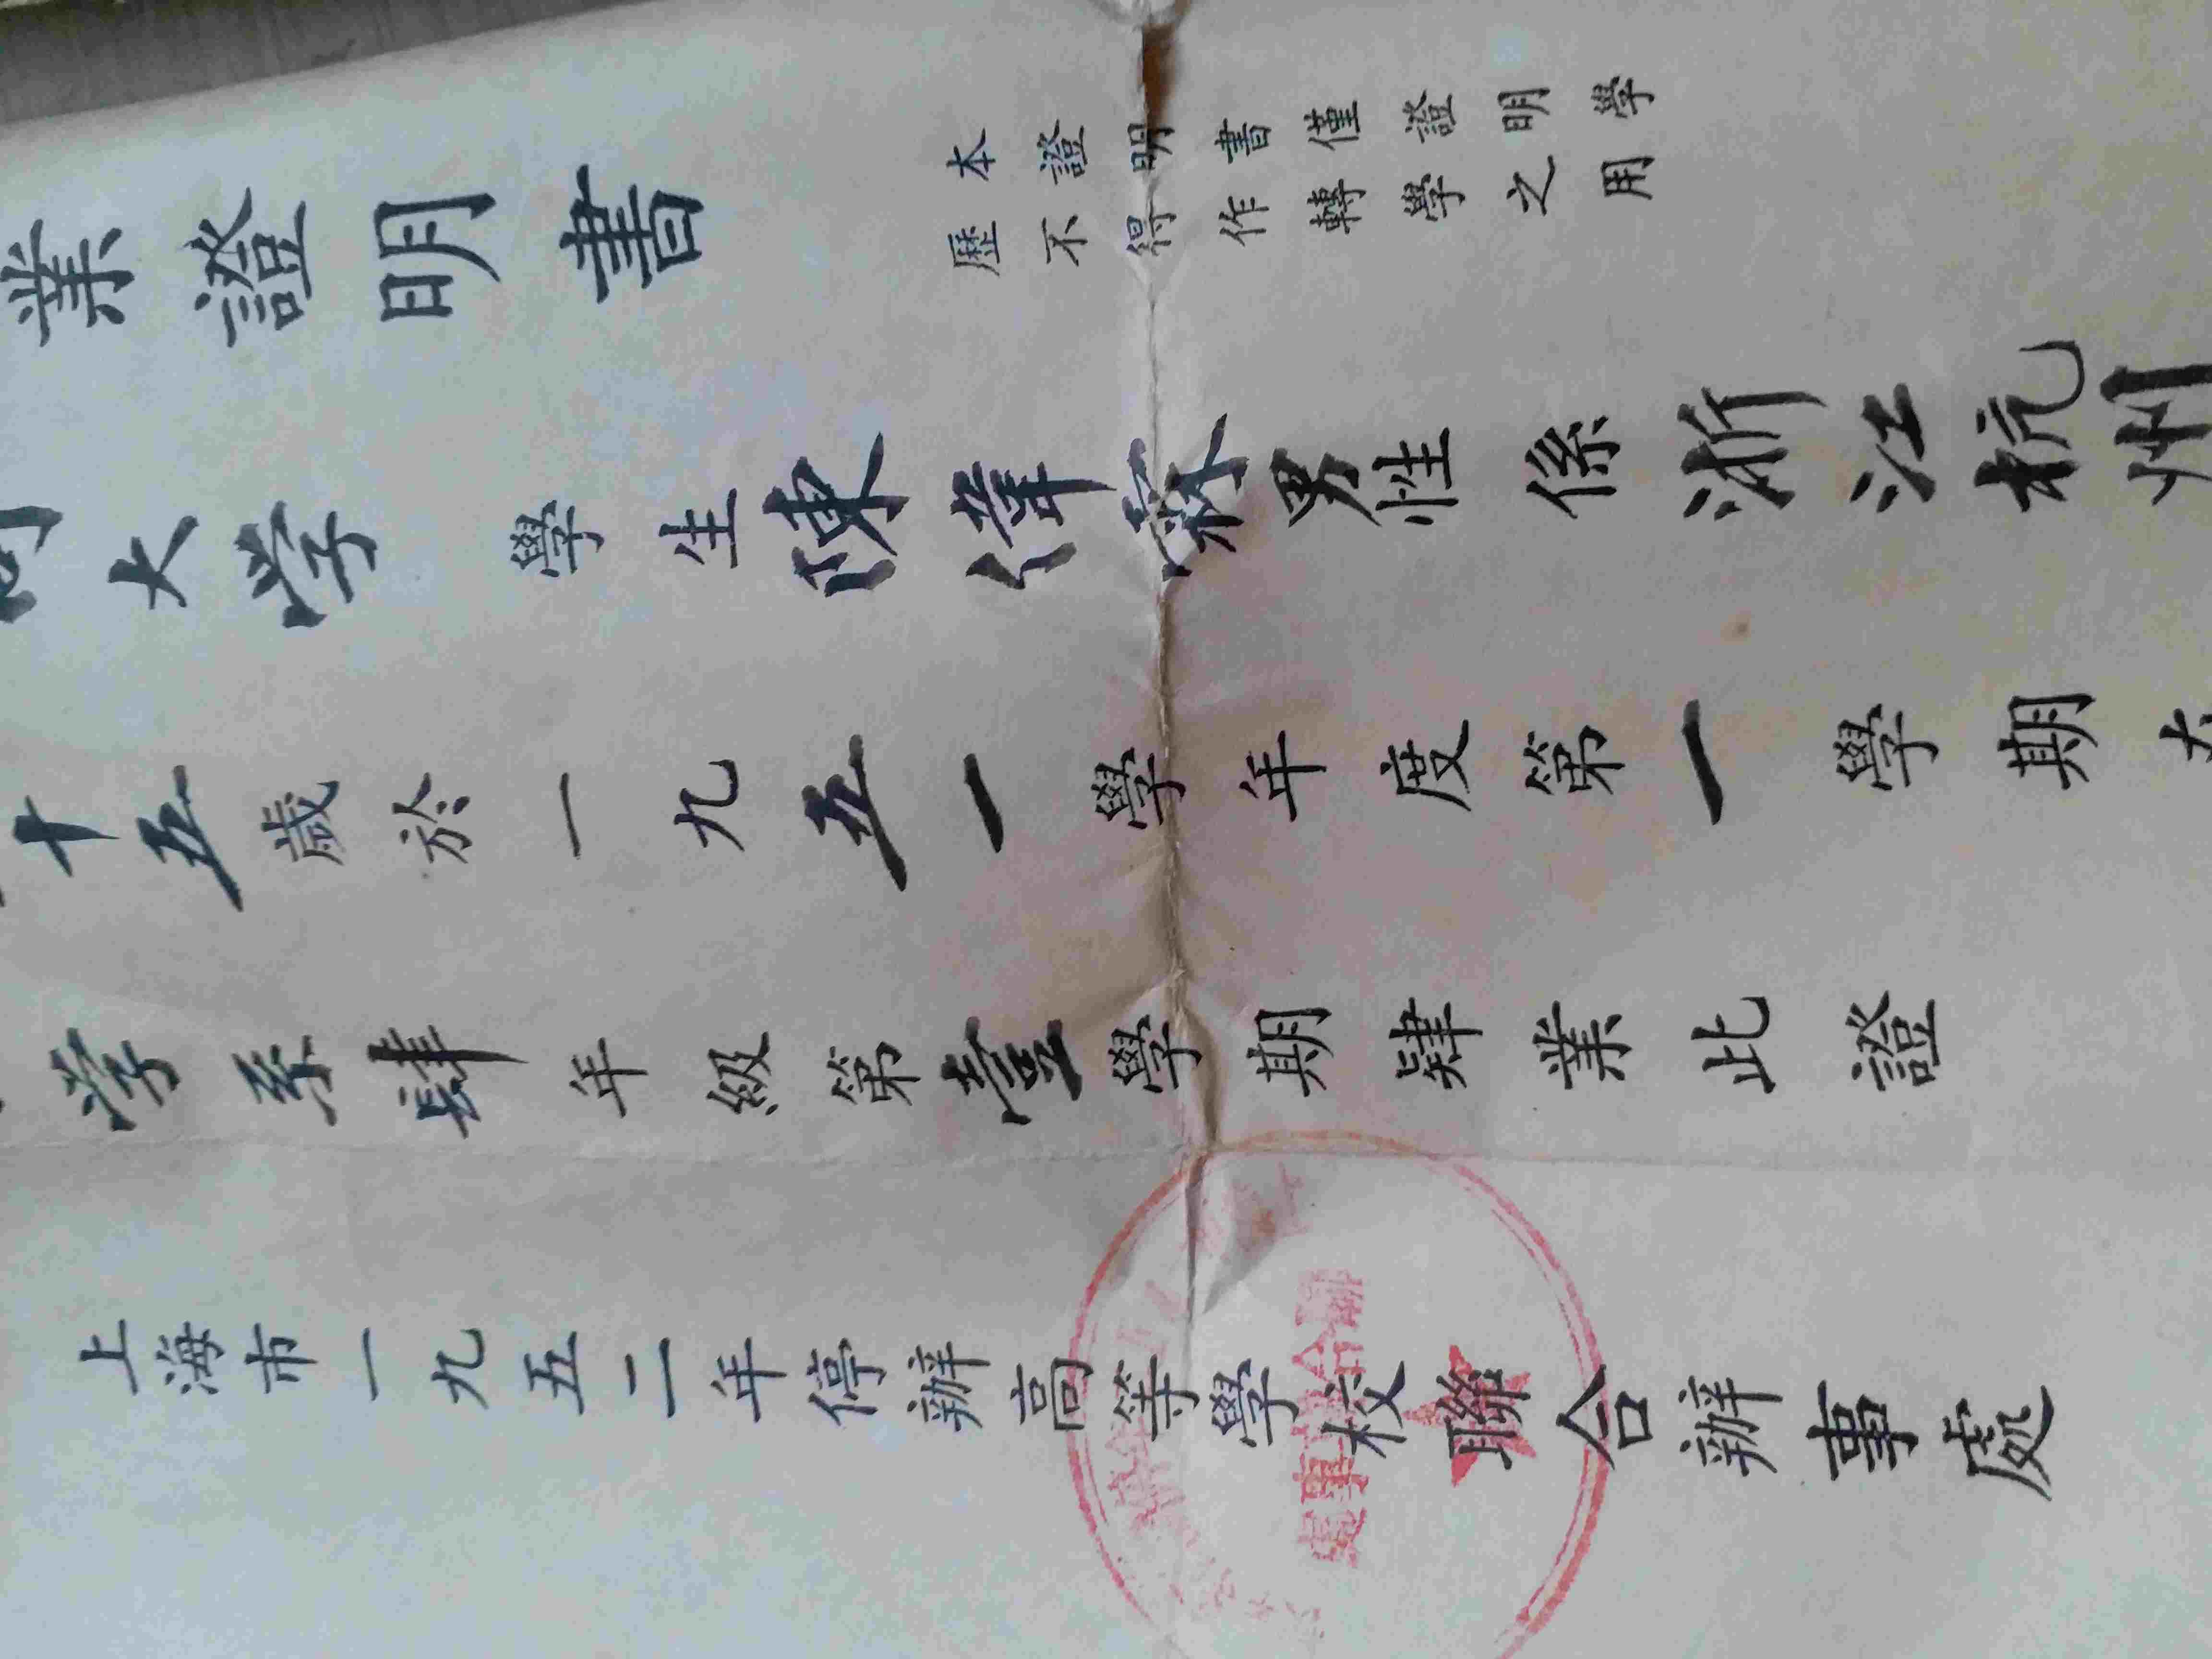 業證明書
本證明書僅證明學
歷不得作轉學之用
大学 學生陳偉 男性係浙江杭州
十五歲於一九五一學年度第一學期在
学系肆年級第壹學期肄業此證
上海市一九五二年停辦高等學校聯合辦事處
聯合辦
事處